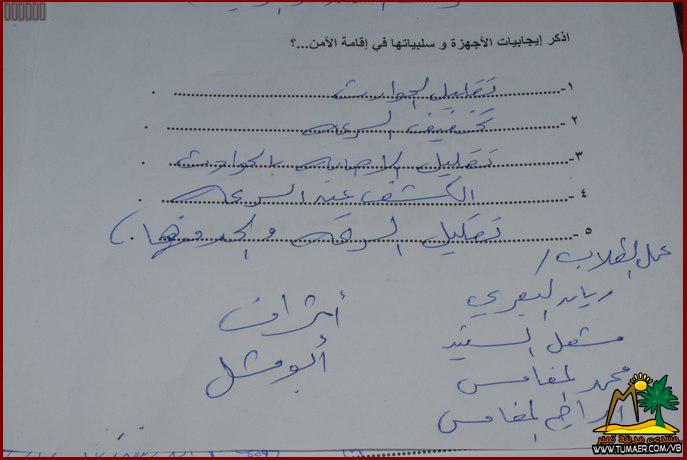 اذكر إيجابيات الأجهزة و سلبياتها في إقامة الأمن...؟
١- تقليل الحوادث
٢- تخفيف السرعه
٣- تقليل الاصابه بالحوادث
٤- الكشف عند السرعه
٥- تقليل السرقه و
عمل الطلاب /
ريان
مشعل السند
محمد المغامس
المغامس
أشراف
أبو مشل
منتدى مدينة تمير
WWW.TUMAER.COM/VB